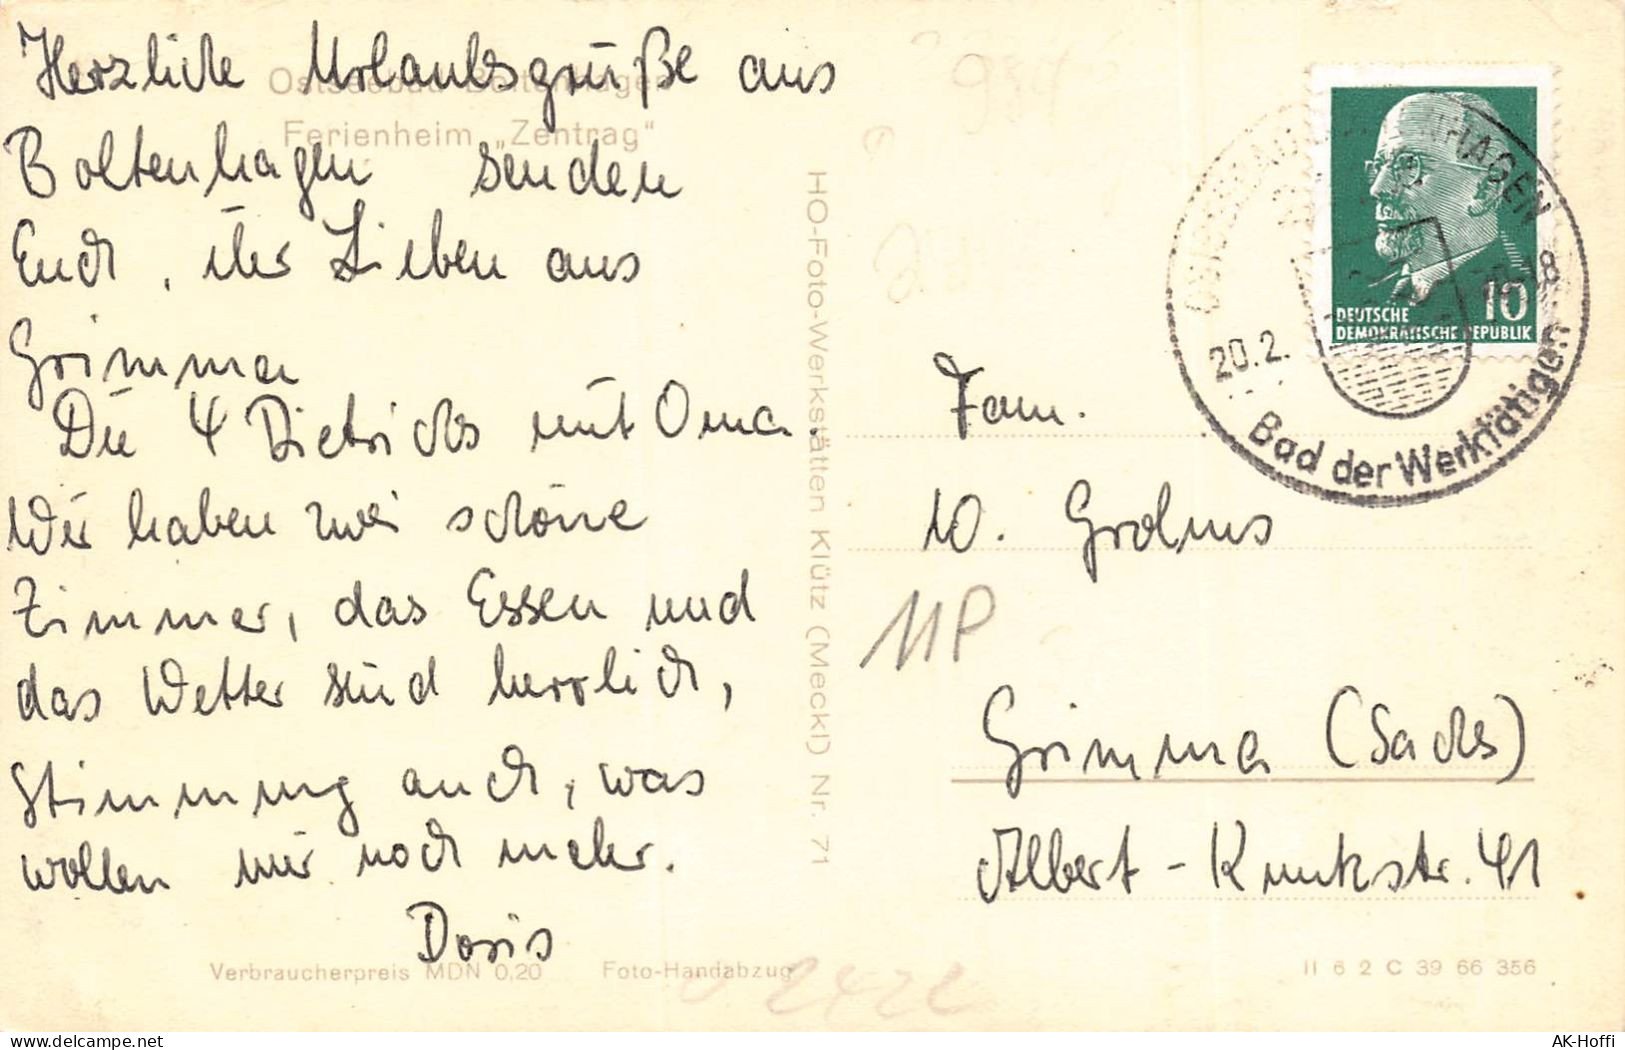 Ostseebad Boltenhagen
Ferienheim „Zentrag"
Herzliche Urlaubsgrüße aus
Boltenhagen senden
Euch, ihr Lieben aus
Grimma
Die 4 Dietrichs mit Oma.
Wir haben zwei schöne
Zimmer, das Essen und
das Wetter sind herrlich,
Stimmung auch, was
wollen wir noch mehr.
Doris
Verbraucherpreis MDN 0,20 Foto-Handabzug
HO-Foto-Werkstätten Klütz (Meckl) Nr. 71
OSTSEEBAD BOLTENHAGEN
20.2.
-18
Bad der Werktätigen
10
DEUTSCHE
DEMOKRATISCHE REPUBLIK
Fam.
W. Grolms
MP
Grimma (Sachs)
Albert-Kuntzstr. 41
II 6 2 C 39 66 356
2422
www.delcampe.net
AK-Hoffi